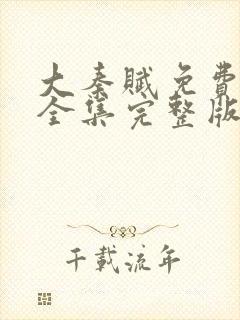 大秦赋免費
全集完整版
千載流年